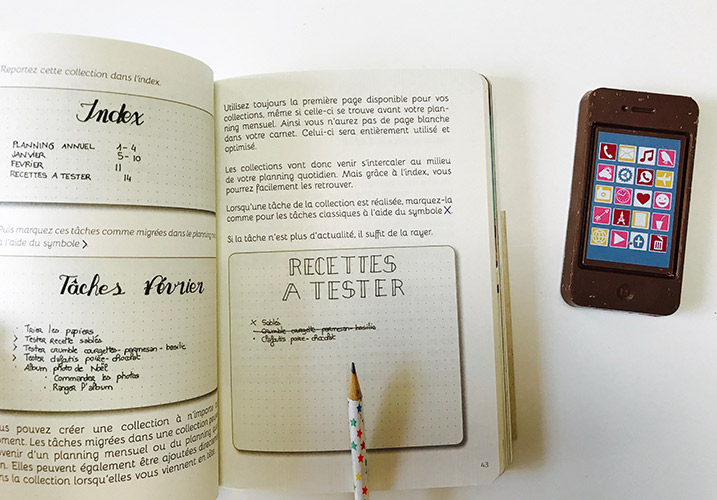 Reportez cette collection dans l'index.
Index
PLANNING ANNUEL 1-4
JANVIER 5-10
FEVRIER 11
RECETTES A TESTER 14
Puis marquez ces tâches comme migrées dans le planning
à l'aide du symbole >
Tâches Février
· Trier les papiers
> Tester recette sablés
> Tester crumble courgettes-parmesan-basilic
> Tester clafoutis poire-chocolat
· Album photo de Noël
· Commander les photos
· Ranger l'album
pouvez créer une collection à n'importe
Les tâches migrées dans une collection
d'un planning mensuel ou du planning
Elles peuvent également être ajoutées
la collection lorsqu'elles vous viennent en tête.
Utilisez toujours la première page disponible pour vos
collections, même si celle-ci se trouve avant votre plan-
ning mensuel. Ainsi vous n'aurez pas de page blanche
dans votre carnet. Celui-ci sera entièrement utilisé et
optimisé.
Les collections vont donc venir s'intercaler au milieu
de votre planning quotidien. Mais grâce à l'index, vous
pourrez facilement les retrouver.
Lorsqu'une tâche de la collection est réalisée, marquez-la
comme pour les tâches classiques à l'aide du symbole X.
Si la tâche n'est plus d'actualité, il suffit de la rayer.
RECETTES
A TESTER
x Sablés
· Crumble courgette-parmesan-basilic
· Clafoutis poire-chocolat
43